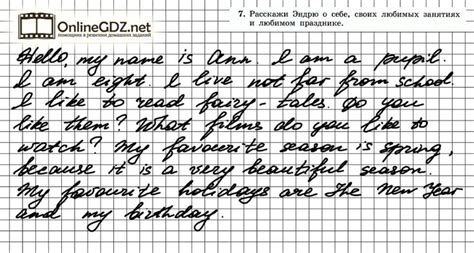 OnlineGDZ.net
помощник в решении домашних заданий
7. Расскажи Эндрю о себе, своих любимых занятиях
и любимом празднике.
Hello, my name is Ann. I am a pupil.
I am eight. I live not far from school.
I like to read fairy-tales. Do you
like them? What films do you like to
watch? My favourite season is spring,
because it is a very beautiful season.
My favourite holidays are The New Year
and my birthday.